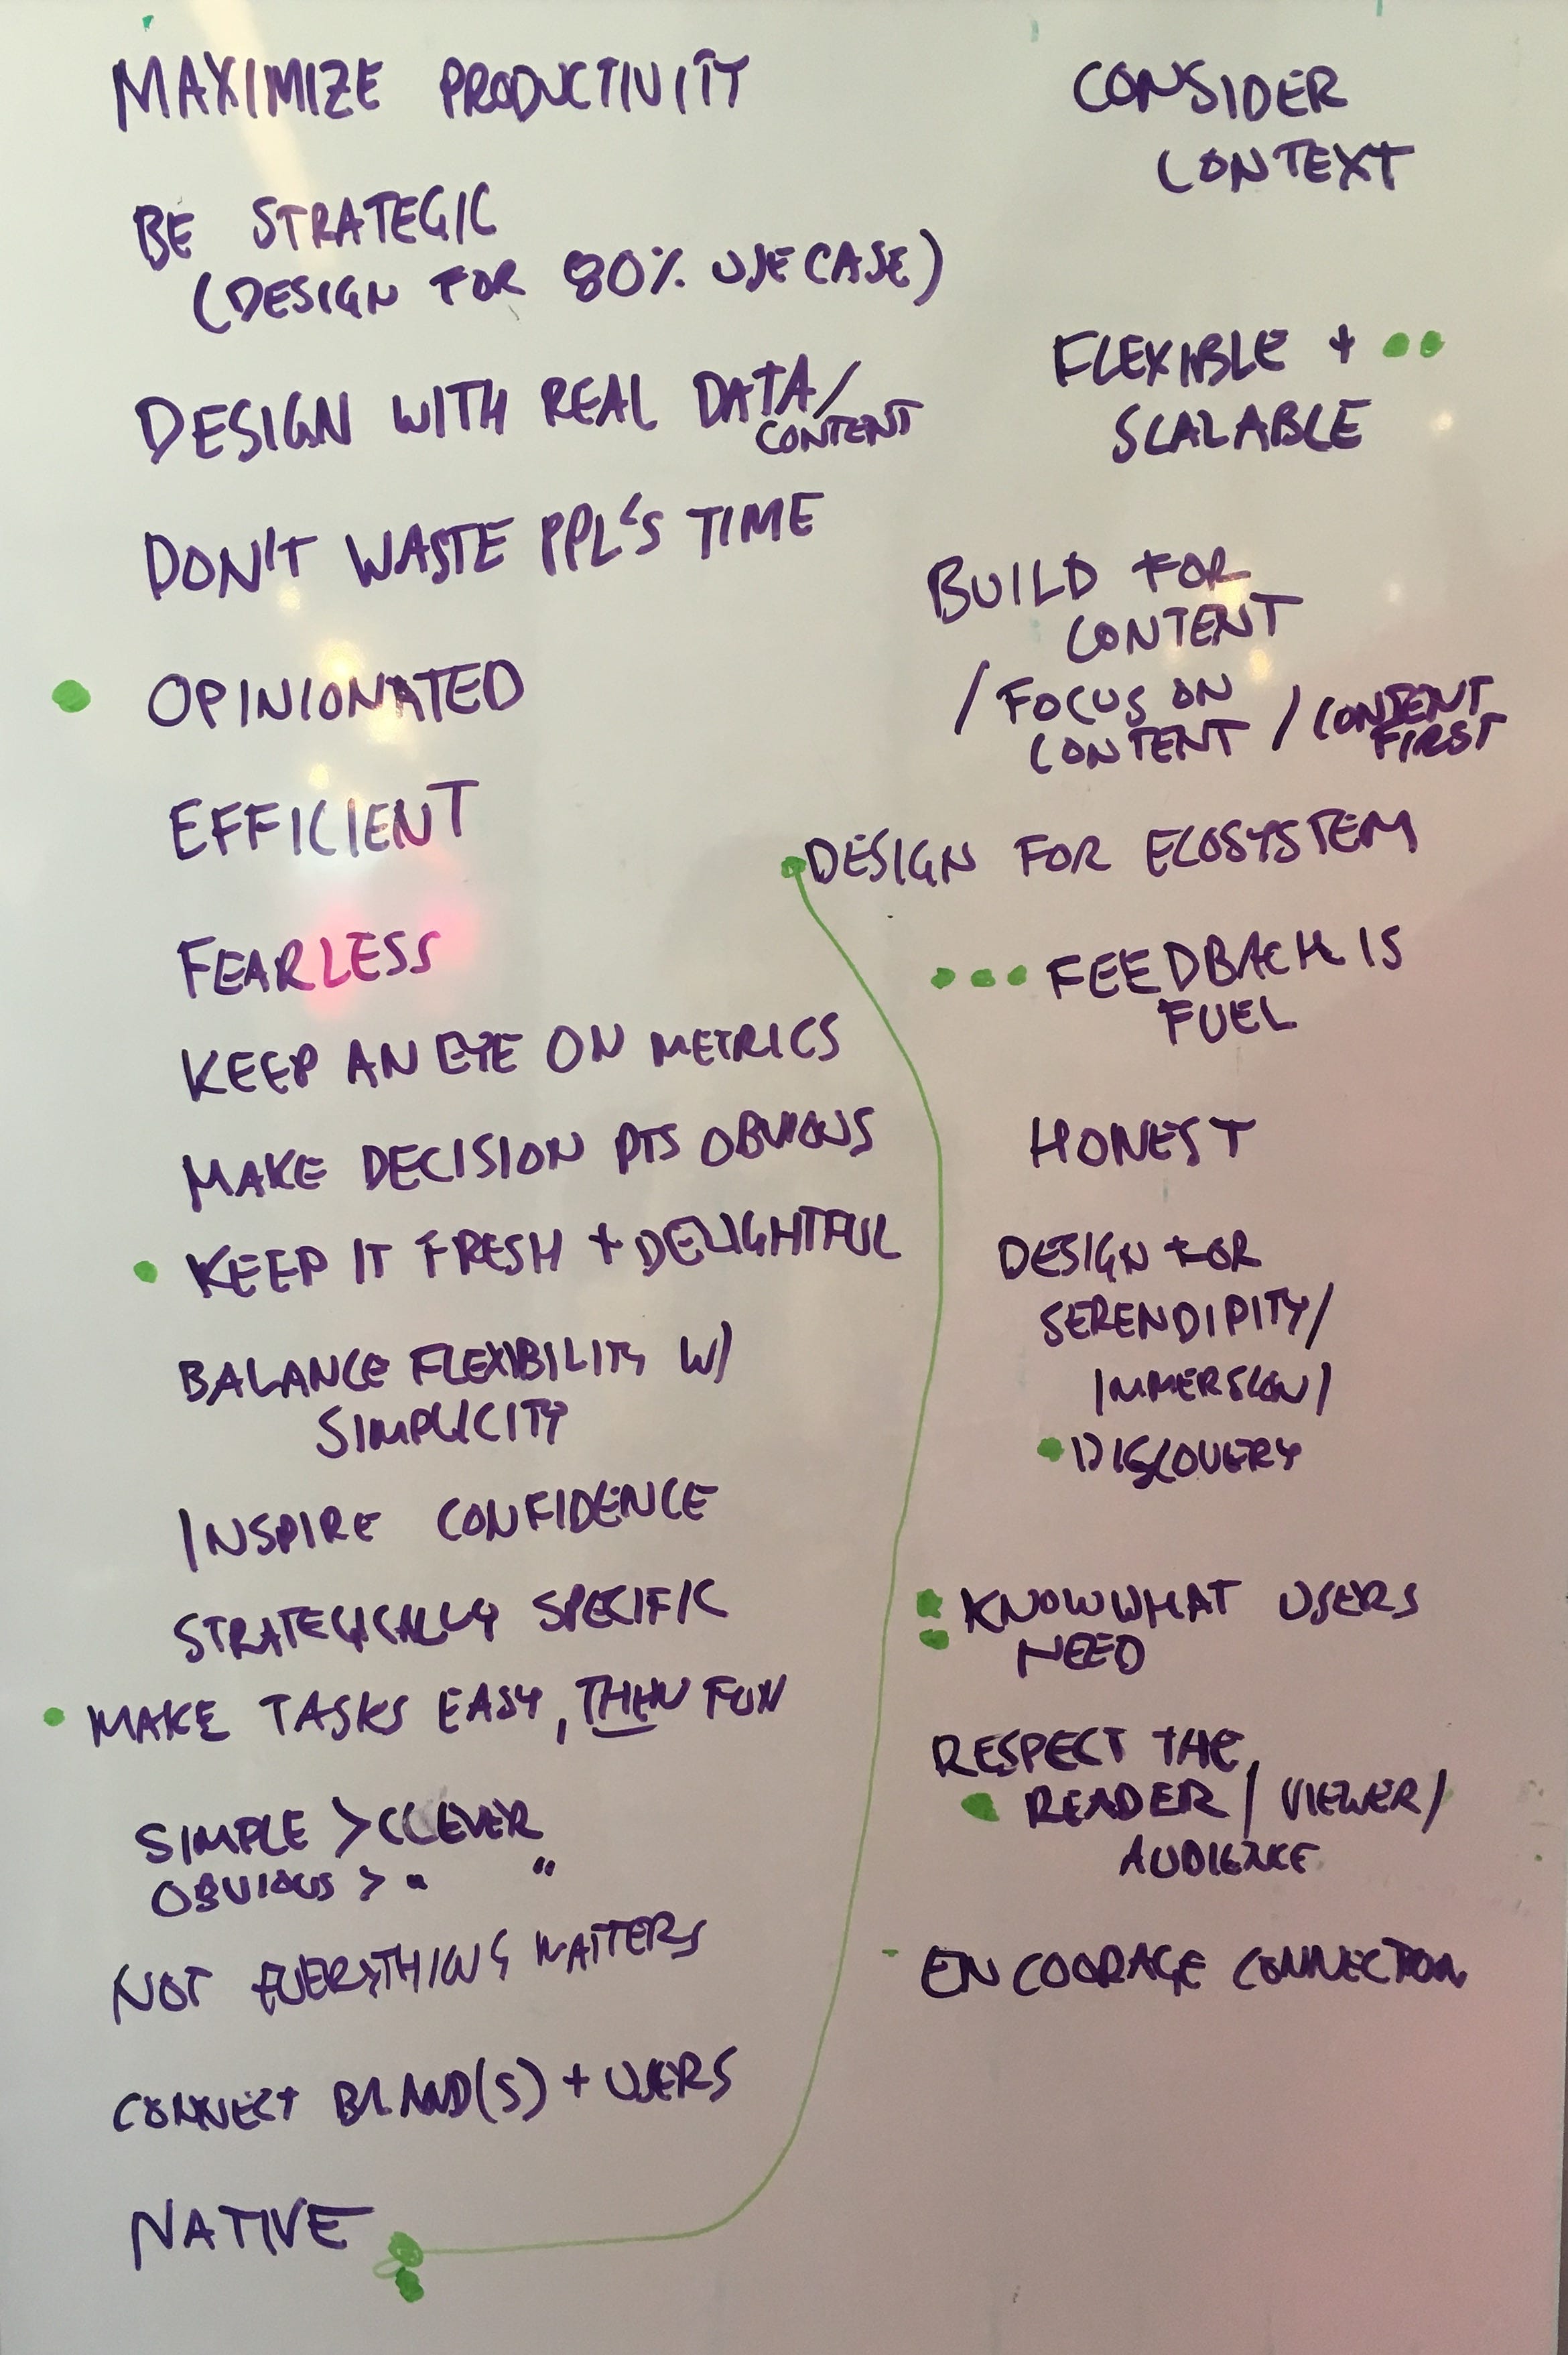 MAXIMIZE PRODUCTIVITY
BE STRATEGIC
(DESIGN FOR 80% USE CASE)
DESIGN WITH REAL DATA/
CONTENT
DON'T WASTE PPL'S TIME
OPINIONATED
EFFICIENT
FEARLESS
KEEP AN EYE ON METRICS
MAKE DECISION PTS OBVIOUS
KEEP IT FRESH + DELIGHTFUL
BALANCE FLEXIBILITY W/
SIMPLICITY
INSPIRE CONFIDENCE
STRATEGICALLY SPECIFIC
MAKE TASKS EASY, THEN FUN
SIMPLE > CLEVER
OBVIOUS > " "
NOT EVERYTHING MATTERS
CONNECT BRAND(S) + USERS
NATIVE
CONSIDER
CONTEXT
FLEXIBLE +
SCALABLE
BUILD FOR
CONTENT
/ FOCUS ON
CONTENT / CONTENT
FIRST
DESIGN FOR ECOSYSTEM
FEEDBACK IS
FUEL
HONEST
DESIGN FOR
SERENDIPITY/
IMMERSION/
DISCOVERY
KNOW WHAT USERS
NEED
RESPECT THE
READER / VIEWER /
AUDIENCE
ENCOURAGE CONNECTION